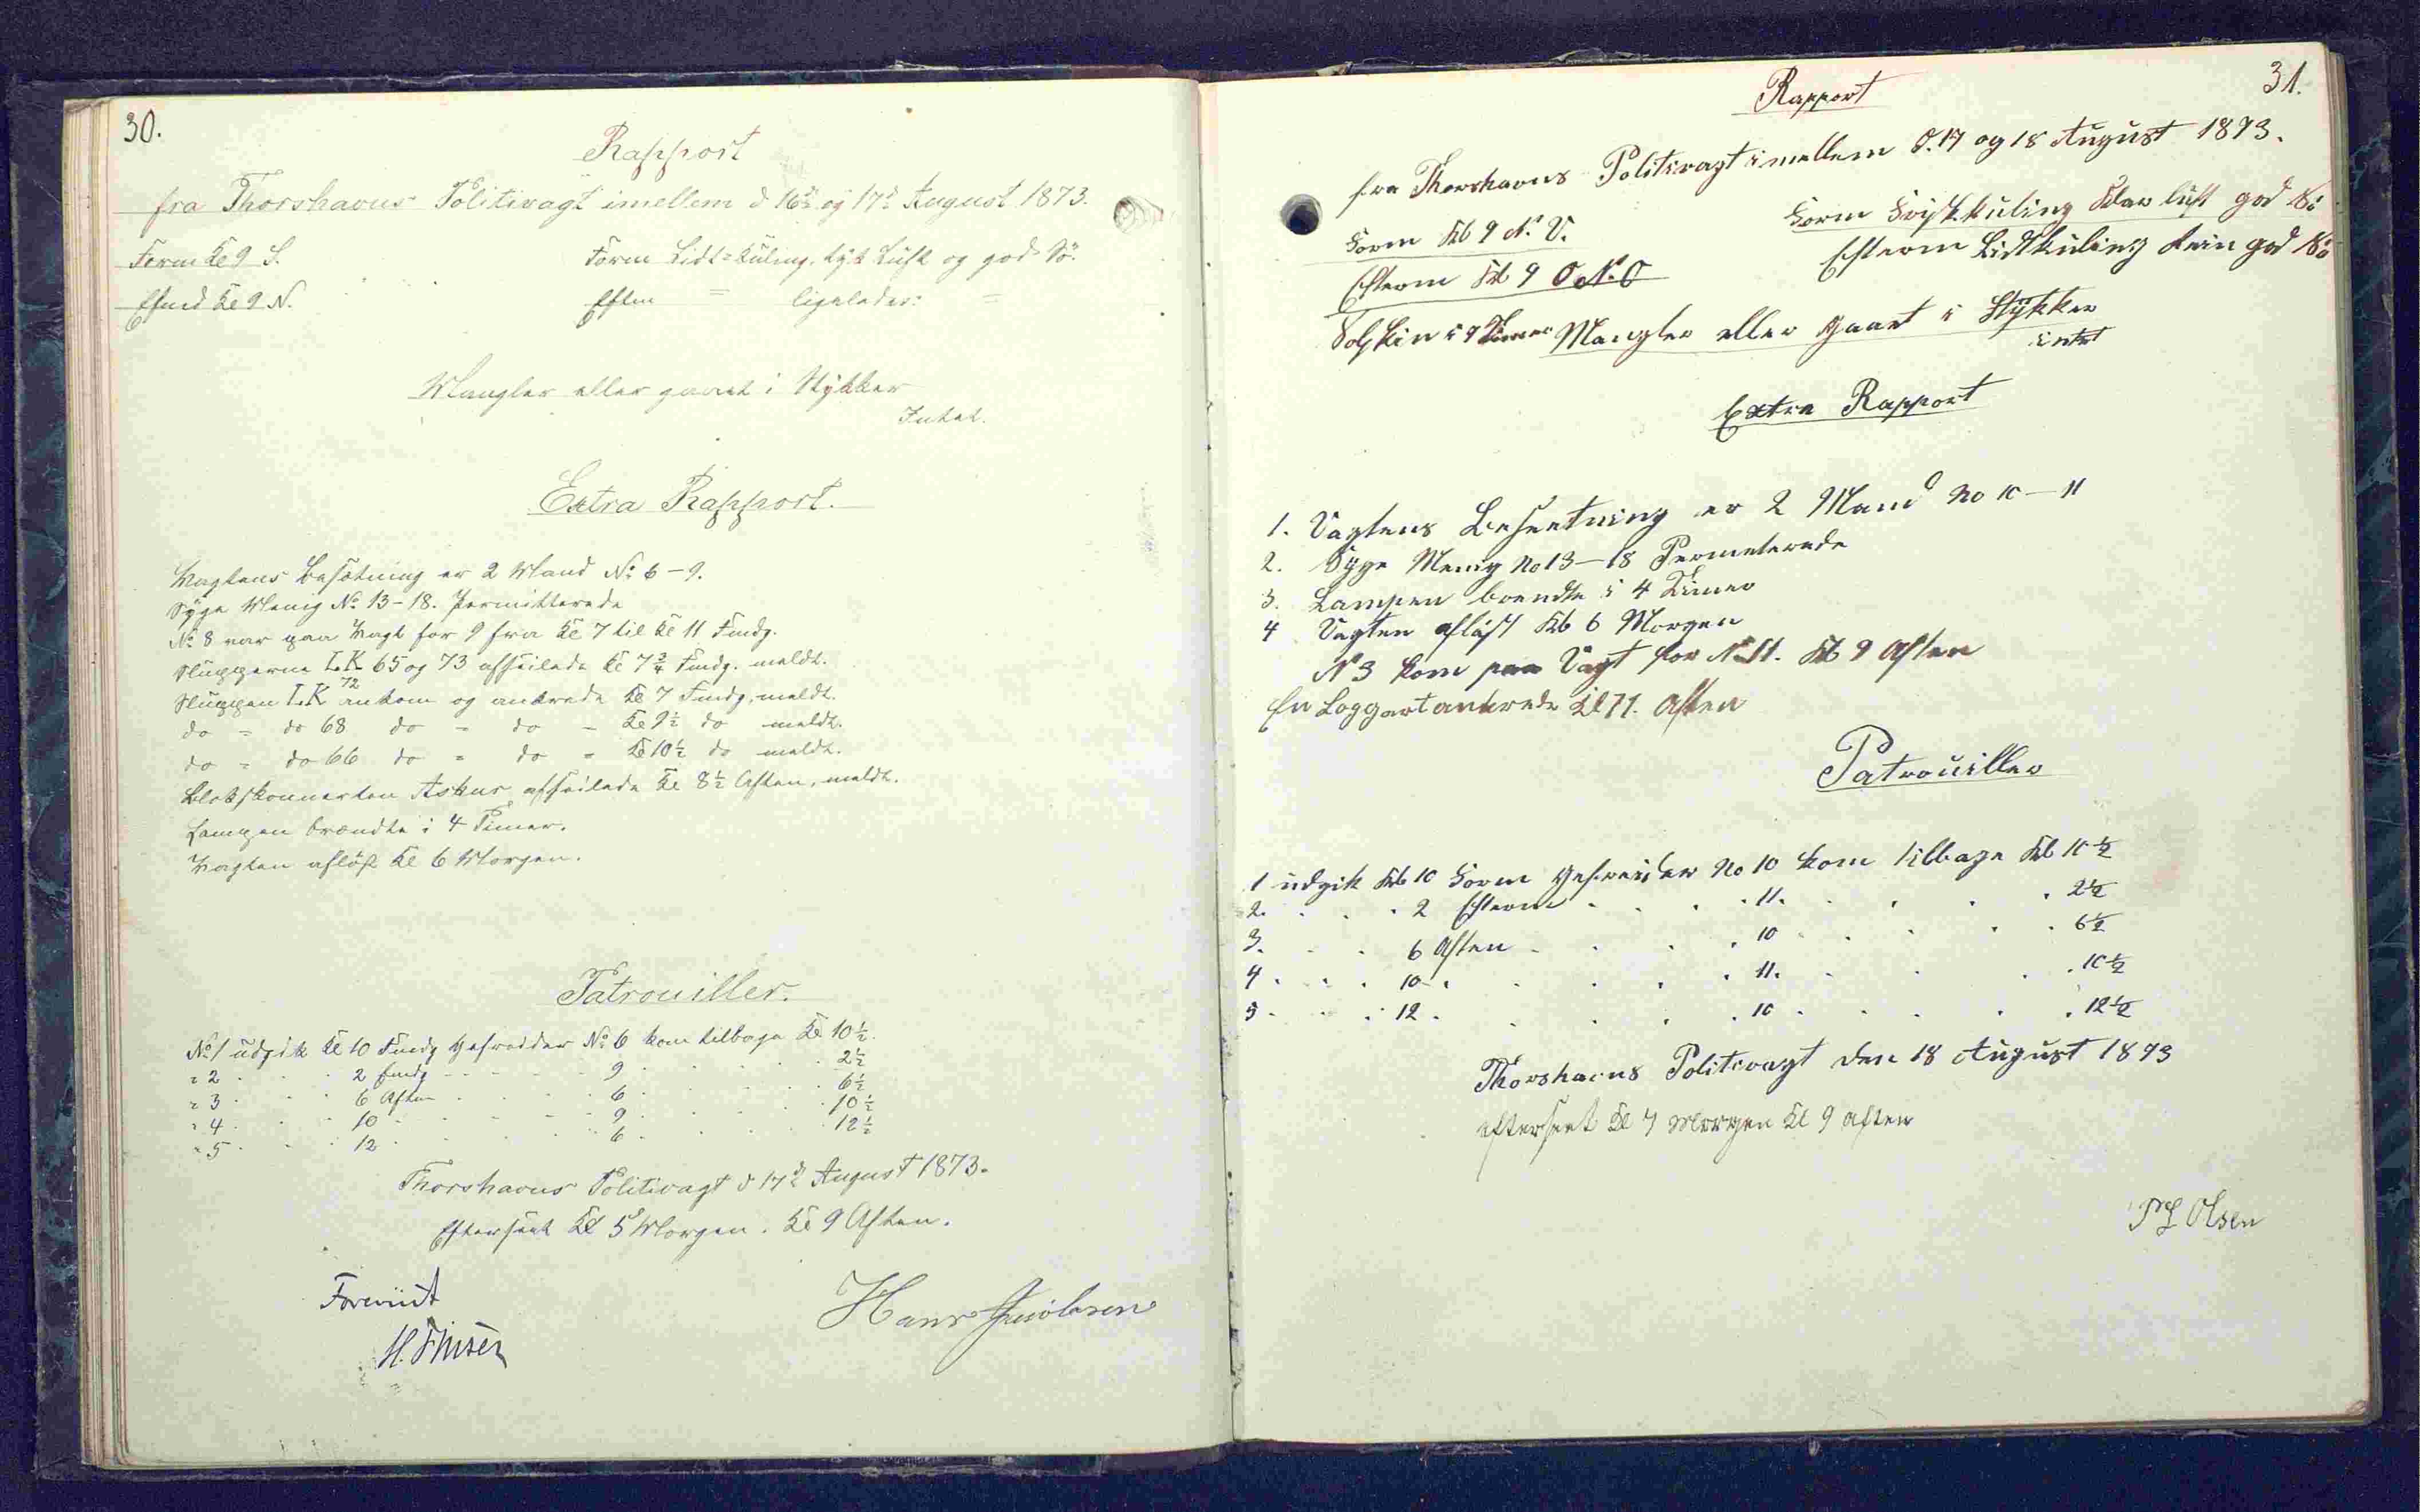 30.
Rapport
fra Thorshavns Politivagt imellem d 16de og 17de August 1873.
Form Kl 9 S.
Form Lidt=Kuling, tyk Luft og god Sö.
Efmd Kl 9 N.
Eftm = ligeledes: =
Mangler eller gaaet i Stykker
Intet.
Extra Rapport.
Vagtens Besætning er 2 Mand No 6-9.
Syge Menig No 13-18. Permitterede
No 8 var paa Vagt for 9 fra Kl 7 til Kl 11 Fmdg.
Slupperne T.K 65 og 73 afseilede Kl 7 3/4 Fmdg. meldt.
Sluppen T.K 72 ankom og ankrede Kl 7 Fmdg. meldt.
do = do 68 do = do = Kl 9 1/2 do meldt.
do = do 66 do = do = Kl 10 1/2 do meldt.
Slobskonnerten Askur afseilede Kl 8 1/2 Aften, meldt.
Lampen brændte i 4 Timer.
Vagten aflöst Kl 6 Morgen.
Patrouiller.
No 1 udgik Kl 10 Fmdg Gefreider No 6 kom tilbage Kl 10 1/2.
= 2 . . . 2 Emdg - - - 9 . . . . 2 1/2
= 3 . . . 6 Aften . . . 6 . . . . 6 1/2
= 4 . . . 10 - - - 9 . . . . 10 1/2
= 5 . . . 12 . . . 6 . . . . 12 1/2
Thorshavns Politivagt d 17de August 1873.
Efterseet Kl 5 Morgen. Kl 9 Aften.
Foreviist
H. Finsen
Hans Jacobsen
31.
Rapport
fra Thorshavns Politivagt imellem d. 17 og 18 August 1873.
Form Kl 9 N. V.
Form Friskkuling Klar luft god Sö
Efterm Kl 9 O.N.O
Efterm Lidtkuling Rein god Sö
Solskin i 9 Timer Mangler eller gaaet i Stykker
intet
Extra Rapport
1. Vagtens Besætning er 2 Mand No 10-11
2. Syge Menig No 13-18 Permeterede
3. Lampen brendte i 4 Timer
4 Vagten aflöst Kl 6 Morgen
N 3 kom paa Vagt for N. 11. Kl 9 Aften
En Loggert ankrede Kl 11. Aften
Patrouiller
1 udgik Kl 10 Form Gefreider No 10 kom tilbage Kl 10 1/2
2. . . . 2 Efterm . . . 11. . . . . 2 1/2
3. . . 6 Aften . . . 10 . . . . 6 1/2
4 . . . 10 . . . . 11. . . . 10 1/2
5 . . . 12 . . . . 10 . . . . 12 1/2
Thorshavns Politivagt den 18 August 1873
efterseet Kl 7 Morgen Kl 9 Aften
Olsen